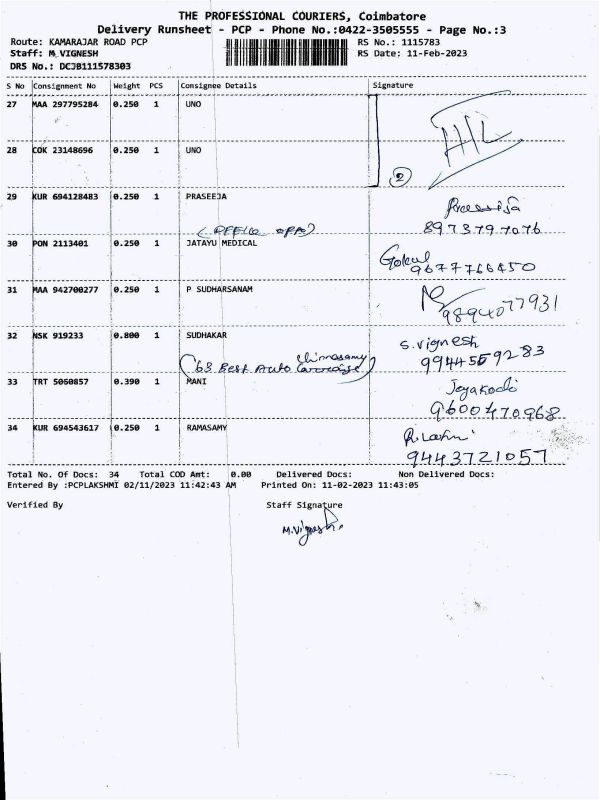 THE PROFESSIONAL COURIERS, Coimbatore
Delivery Runsheet - PCP - Phone No.:0422-3505555 - Page No.:3
Route: KAMARAJAR ROAD PCP RS No.: 1115783
Staff: M VIGNESH RS Date: 11-Feb-2023
DRS No.: DCJB111578303
S No Consignment No Weight PCS Consignee Details Signature
27 MAA 297795284 0.250 1 UNO
28 COK 23148696 0.250 1 UNO
2
29 KUR 694128483 0.250 1 PRASEEJA
8973797076
30 PON 2113401 0.250 1 JATAYU MEDICAL Gokul
9677766450
31 MAA 942700277 0.250 1 P SUDHARSANAM
9894077931
32 NSK 919233 0.800 1 SUDHAKAR S.vignesh
9944559283
63 Best Auto
33 TRT 5060857 0.390 1 MANI Jeyakodi
9600470968
34 KUR 694543617 0.250 1 RAMASAMY
9443721057
Total No. Of Docs: 34 Total COD Amt: 0.00 Delivered Docs: Non Delivered Docs:
Entered By :PCPLAKSHMI 02/11/2023 11:42:43 AM Printed On: 11-02-2023 11:43:05
Verified By Staff Signature
M.Vignesh.